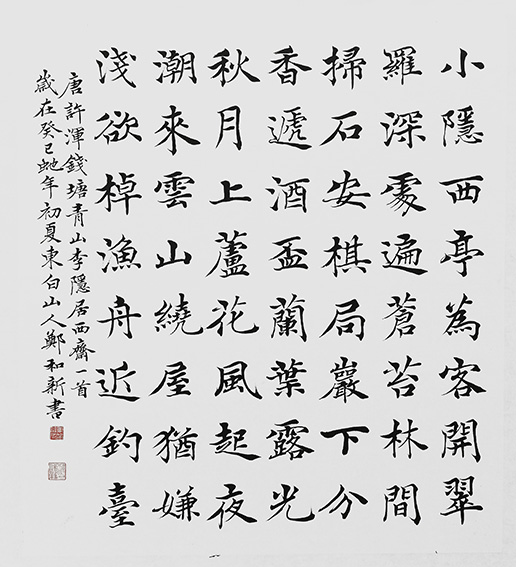 小隱西亭為客開翠
羅深處遍蒼苔林間
掃石安棋局巖下分
香遞酒盃蘭葉露光
秋月上蘆花風起夜
潮來雲山繞屋猶嫌
淺欲棹漁舟近釣臺
唐許渾錢塘青山李隱居西齋一首
歲在癸巳虵年初夏東白山人鄭和新書